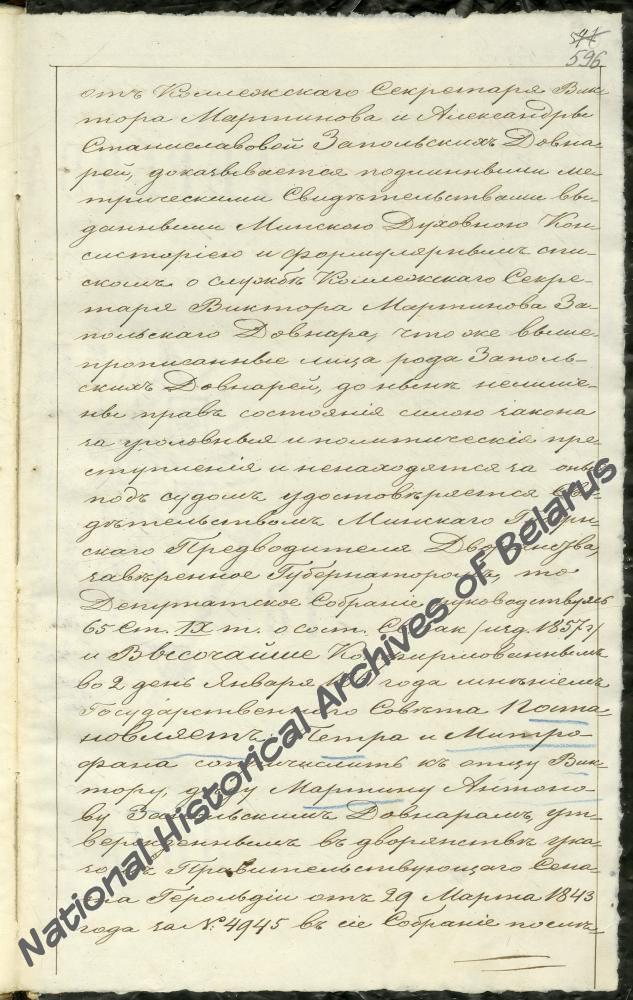 596
отъ Коллежскаго Секретаря Вик-
тора Мартинова и Александры
Станиславовой Запольскихъ Довна-
рей, доказывается подлинными ме-
трическими Свидѣтельствами вы-
данными Минскою Духовною Кон-
систоріею и формулярнымъ спи-
скомъ о службѣ Коллежскаго Секре-
таря Виктора Мартинова За-
польскаго Довнара, что же выше-
прописанные лица рода Заполь-
скихъ Довнарей, до нынѣ нелише-
ны правъ состоянія силою закона
за уголовныя и политическія пре-
ступленія и ненаходятся за оныя
подъ судомъ удостовѣряется Сви-
дѣтельствомъ Минскаго Губерн-
скаго Предводителя Дворянства,
завѣренное Губернаторомъ, то
Депутатское Собраніе руководствуясь
65 Ст. IX т. о сост. Св. Зак /изд. 1857 г/
и Высочайше Конфирмованнымъ
во 2 день Января года мнѣніемъ
Государственнаго Совѣта Поста-
новляетъ: Петра и Митро-
фана сопричислить къ отцу Вик-
тору, дѣду Мартину Антоно-
ву Запольскимъ Довнарамъ, ут-
вержденнымъ въ дворянствѣ ука-
зомъ Правительствующаго Сена-
та Герольдіи отъ 29 Марта 1843
года за №. 4945 въ сіе Собраніе послѣ-
National Historical Archives of Belarus